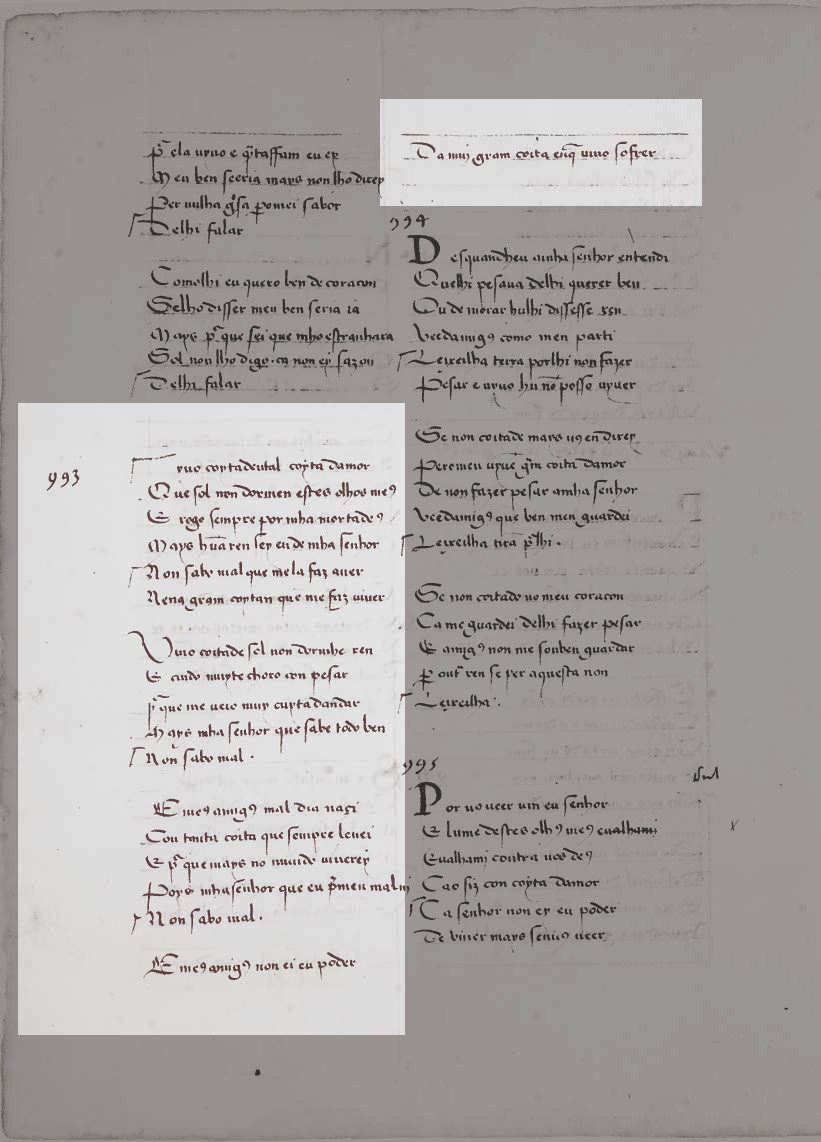 ꝑ̃ ela uyuo e q̃ taffam eu ex
Meu ben seeria mays non lho direy
Per nulha gͥsa ꝑomei sabor
Delhi falar
Comolhi eu quero ben de coraçon
Selho disser meu ben seria ia
Mays ꝑ̃ que sei que mho estranhara
Sol non lho digo. ca non ey sazon
Delhi falar
993
yuo coytadental coyta damor
Que sol non dormen estes olhos meꝯ
E rogo sempre por mha mortadeꝯ
Mays hũa ren sey eu de mha senhor
Non sabo mal que me la faz auer
Nena gram coytan que me faz viuer
Viuo coitade sol non dormho ren
E cuido muyte choro con pesar
ꝑ̃ que me ueio muy cuyta dandar
Mays mha senhor que sabe todo ben
Non sabo mal .
E meꝯ amigꝯ mal dia naçi
Con tanta coita que sempre leuei
E ꝑ̃ que mays no mundo viuerey
Poys mha senhor que eu ꝑ̃ meu mal ui
Non sabo mal .
E meꝯ amigꝯ non ei eu poder
Da muj gram coita en q̃ uiuo sofrer
994
Des quandheu a mha senhor entendi
Quelhi pesaua delhi querer ben
Ou de morar hu lhi dissesse ren
Veedamigꝯ como men parti
Leixeilha terra por lhi non fazer
Pesar e uyuo hu nõ posso uyuer
Se non coitade mays uꝯ en direy
Peromeu uyue grã coita damor
De non fazer pesar a mha senhor
Veedamigꝯ que ben men guardei
Leixeilha tirã ꝑ̃ lhi .
Se non coitado no meu coraçon
Ca me guardei delhi fazer pesar
E amigꝯ non me souben guardar
ꝑ outͣ ren se per aquesta non
Leixeilha .
995
Por uo ueer vin eu senhor
E lume destes olhꝯ meꝯ eualhami
Eualhami contra uos deꝯ
Ca o fiz con coyta damor
Ca senhor non ey eu poder
De viuer mays seniꝯ ueer